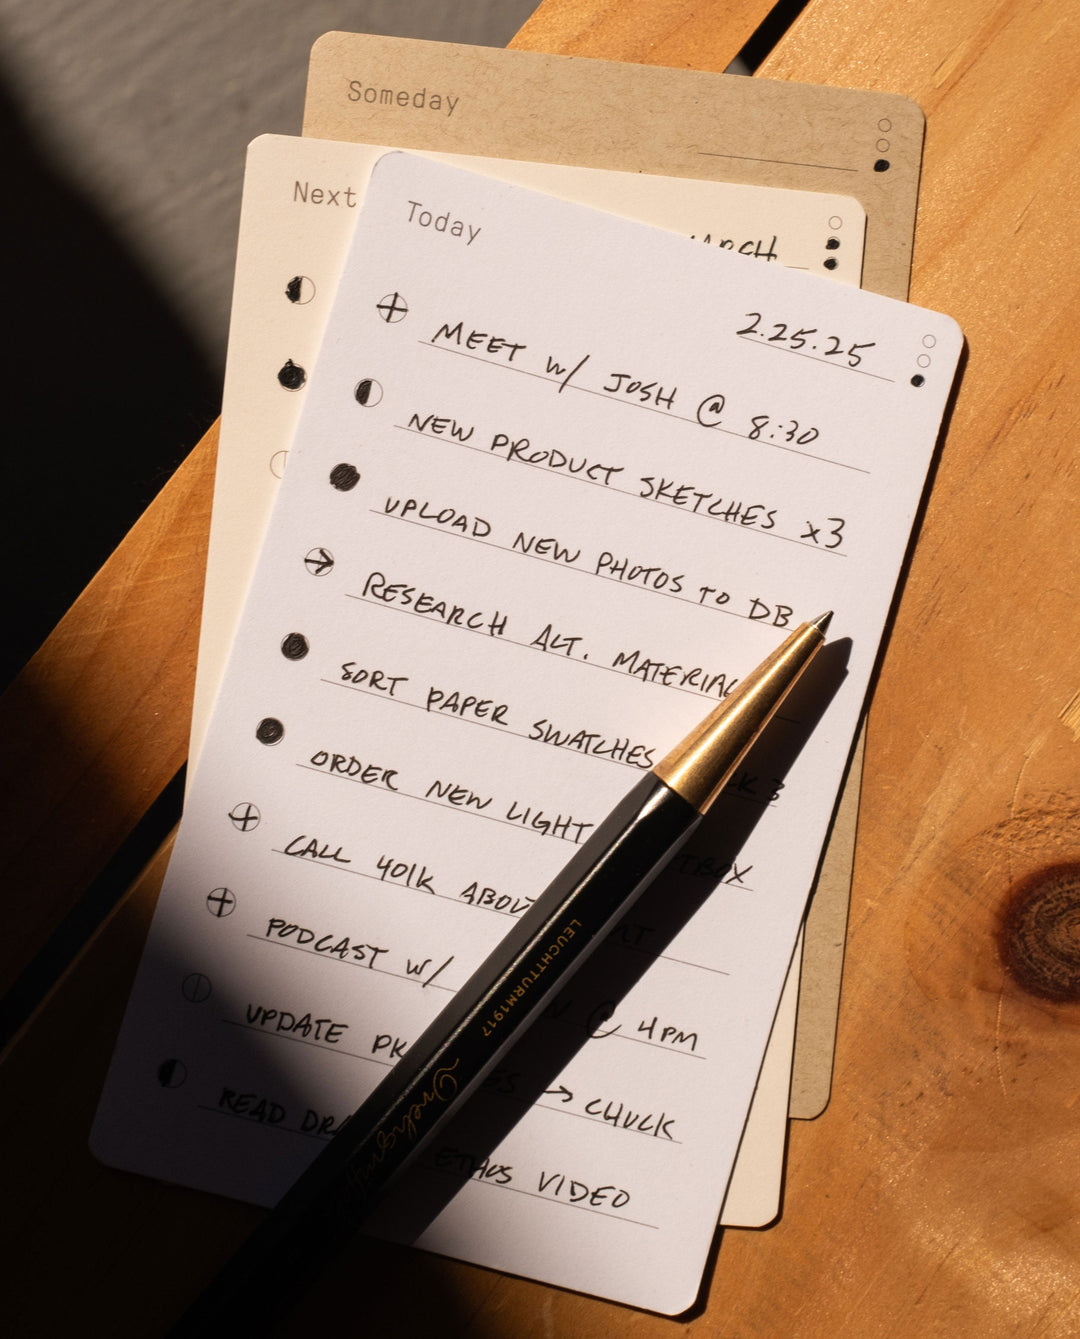 Someday
Next
Today
2.25.25
MEET W/ JOSH @ 8:30
NEW PRODUCT SKETCHES x3
UPLOAD NEW PHOTOS TO DB
RESEARCH ALT.
SORT PAPER SWATCHES
ORDER NEW LIGHT
CALL 401K
PODCAST W/ @ 4PM
UPDATE → CHUCK
READ ETHOS VIDEO
LEUCHTTURM1917